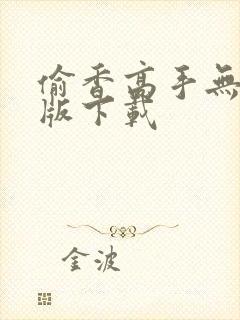 偷香高手無
版下載
金波